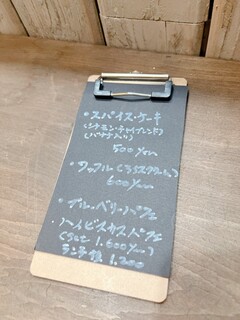 ・スパイス・ケーキ
(シナモン・チャイブレンド)
(バナナ入り)
500yen
・ワッフル(アイスクリーム)
600yen
・ブルーベリーパフェ
ハイビスカスパフェ
(Set 1,600yen)
ランチ後 1,200